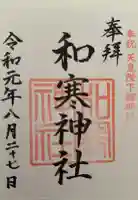 奉祝 天皇陛下御即位
奉拝
和寒神社
令和元年八月二十七日